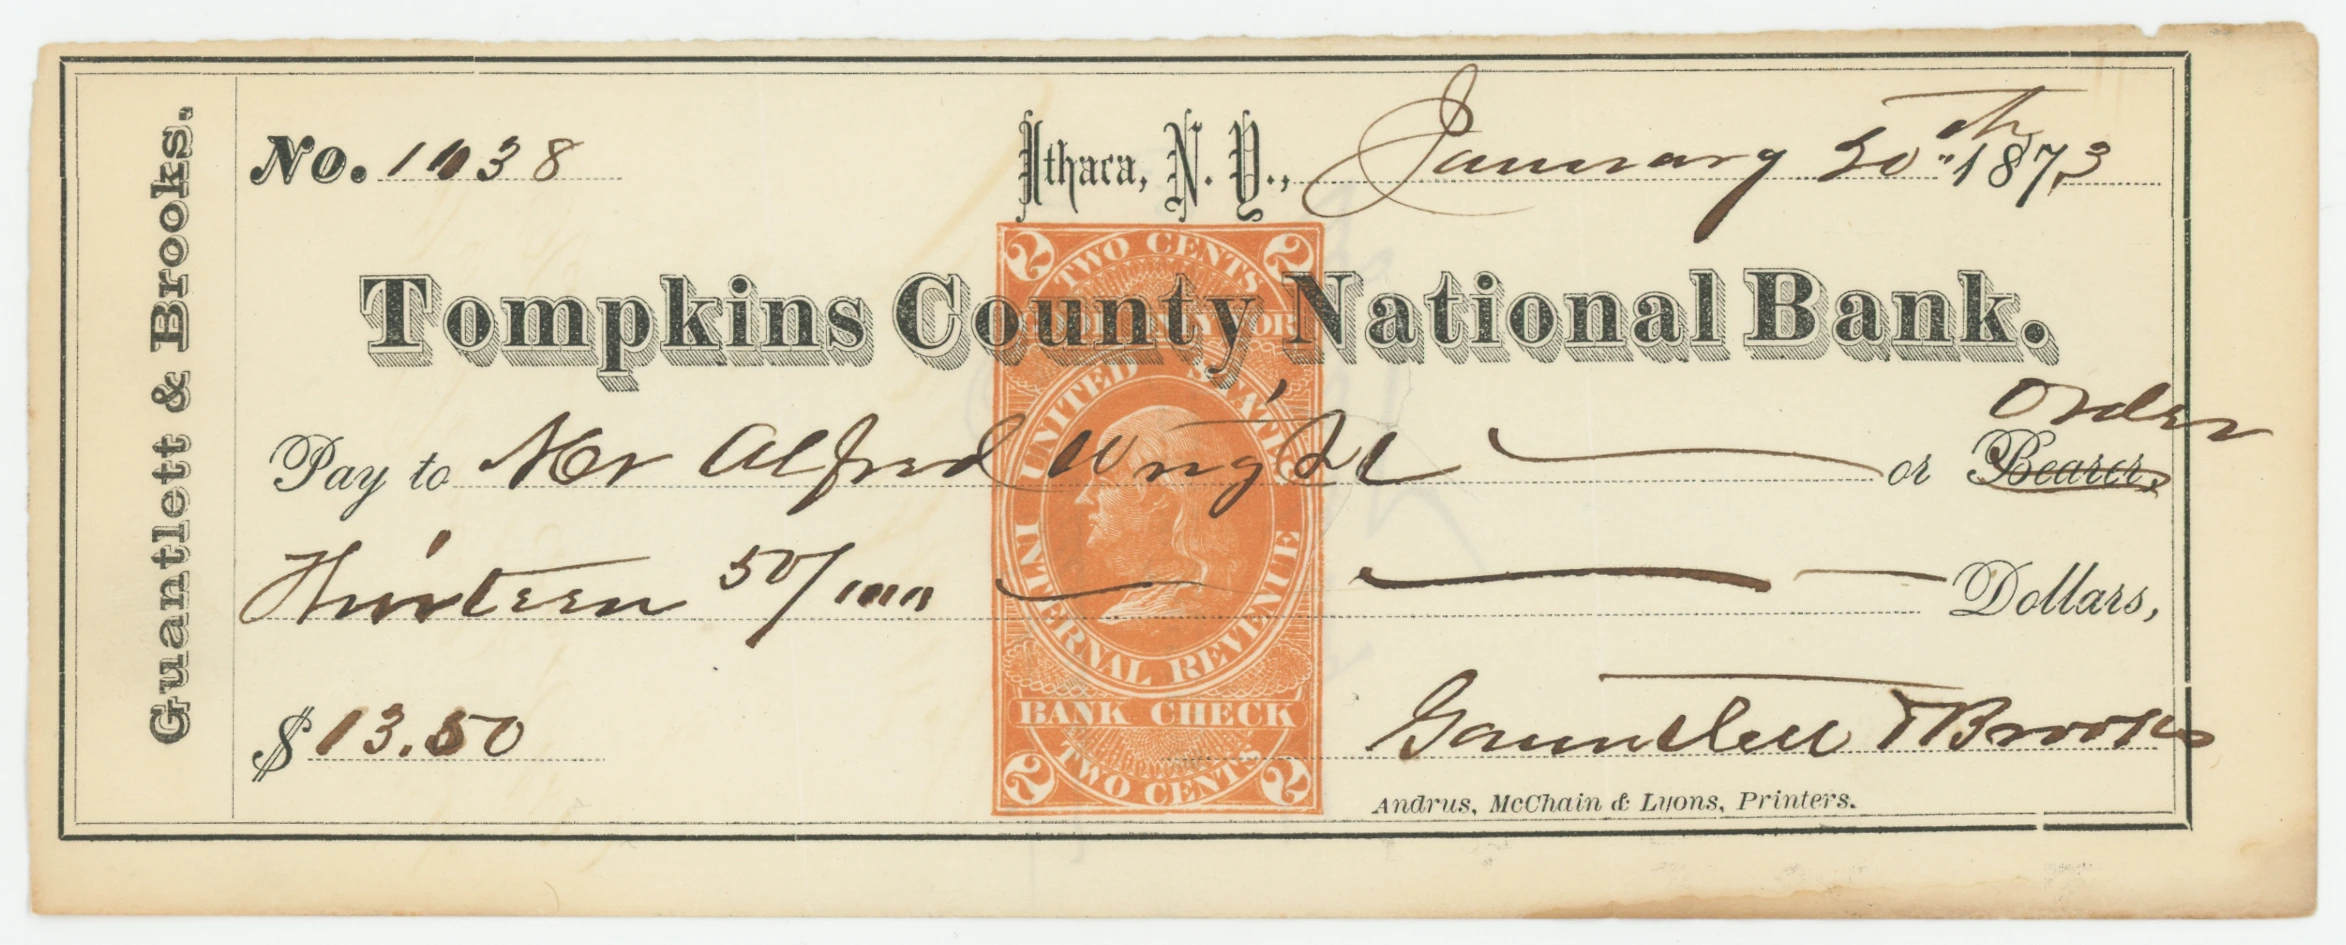 Guantlett & Brooks.
No. 1138
Ithaca, N. Y., January 30th 1873
TWO CENTS
2 2
Tompkins County National Bank.
GOOD ONLY FOR
UNITED STATES
INTERNAL REVENUE
Order
Pay to Mr Alfred Wright or Bearer,
Thirteen 50/100 Dollars,
$13.50
BANK CHECK
Gauntlett & Brooks
2 TWO CENTS 2
Andrus, McChain & Lyons, Printers.